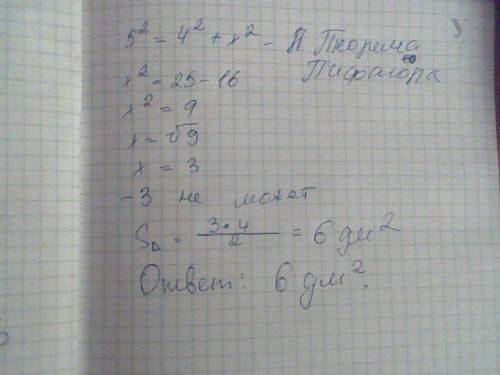 5² = 4² + x² - Теорема
Пифагора
x² = 25 - 16
x² = 9
x = √9
x = 3
-3 не может
S△ = 3•4/2 = 6 дм²
Ответ: 6 дм².